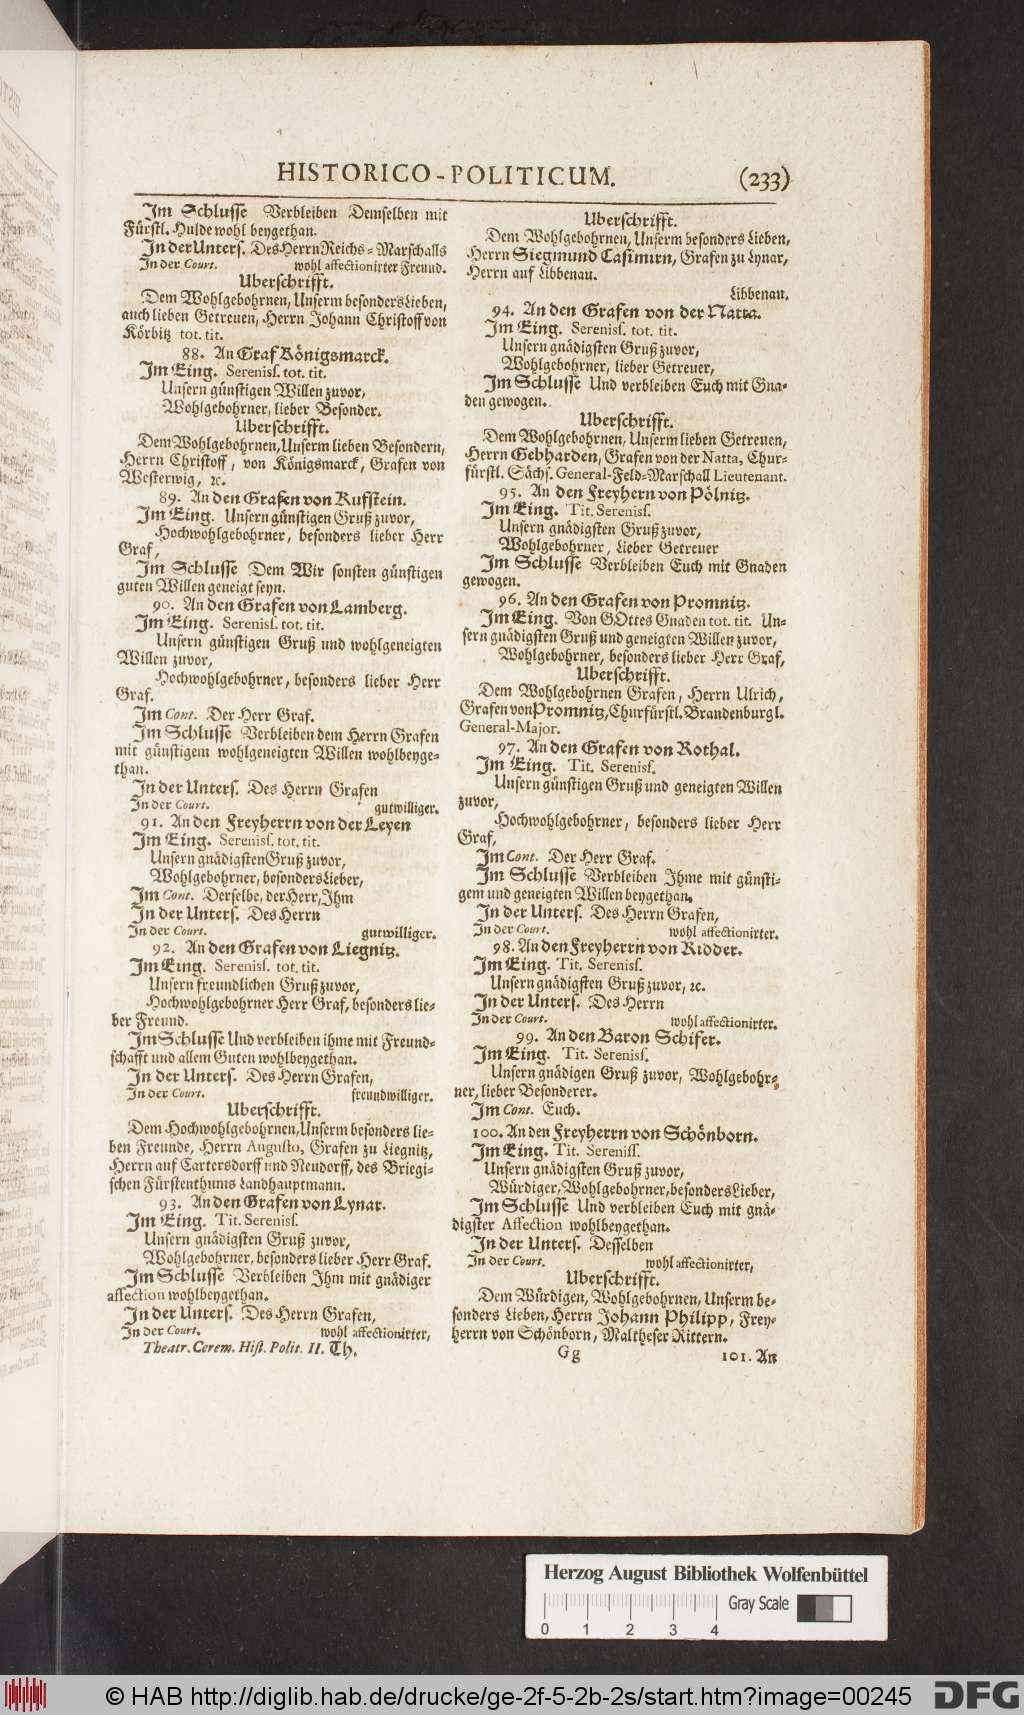 HISTORICO-POLITICUM. (233)
Im Schlusse Verbleiben Demselben mit
Fürstl. Hulde wohl beygethan.
In der Unters. Des Herrn Reichs-Marschalls
In der Court. wohl affectionirter Freund.
Uberschrifft.
Dem Wohlgebohrnen, Unserm besonders Lieben,
auch lieben Getreuen, Herrn Johann Christoff von
Körbitz tot. tit.
88. An Graf Königsmarck.
Im Eing. Sereniss. tot. tit.
Unsern günstigen Willen zuvor,
Wohlgebohrner, lieber Besonder.
Uberschrifft.
Dem Wohlgebohrnen, Unserm lieben Besondern,
Herrn Christoff, von Königsmarck, Grafen von
Westerwig, ꝛc.
89. An den Grafen von Kufstein.
Im Eing. Unsern günstigen Gruß zuvor,
Hochwohlgebohrner, besonders lieber Herr
Graf,
Im Schlusse Dem Wir sonsten günstigen
guten Willen geneigt seyn.
90. An den Grafen von Lamberg.
Im Eing. Sereniss. tot. tit.
Unsern günstigen Gruß und wohlgeneigten
Willen zuvor,
Hochwohlgebohrner, besonders lieber Herr
Graf.
Im Cont. Der Herr Graf.
Im Schlusse Verbleiben dem Herrn Grafen
mit günstigem wohlgeneigten Willen wohlbeyge-
than.
In der Unters. Des Herrn Grafen
In der Court. gutwilliger.
91. An den Freyherrn von der Leyen
Im Eing. Sereniss. tot. tit.
Unsern gnädigsten Gruß zuvor,
Wohlgebohrner, besonders Lieber,
Im Cont. Derselbe, der Herr, Ihm
In der Unters. Des Herrn
In der Court. gutwilliger.
92. An den Grafen von Liegnitz.
Im Eing. Sereniss. tot. tit.
Unsern freundlichen Gruß zuvor,
Hochwohlgebohrner Herr Graf, besonders lie-
ber Freund.
Im Schlusse Und verbleiben ihme mit Freund-
schafft und allem Guten wohlbeygethan.
In der Unters. Des Herrn Grafen,
In der Court. freundwilliger.
Uberschrifft.
Dem Hochwohlgebohrnen, Unserm besonders lie-
ben Freunde, Herrn Augusto, Grafen zu Liegnitz,
Herrn auf Cartersdorff und Neudorff, des Briegi-
schen Fürstenthums Landhauptmann.
93. An den Grafen von Lynar.
Im Eing. Tit. Sereniss.
Unsern gnädigsten Gruß zuvor,
Wohlgebohrner, besonders lieber Herr Graf.
Im Schlusse Verbleiben Ihm mit gnädiger
affection wohlbeygethan.
In der Unters. Des Herrn Grafen,
In der Court. wohl affectionirter,
Theatr. Cerem. Hist. Polit. II. Th.
Uberschrifft.
Dem Wohlgebohrnen, Unserm besonders Lieben,
Herrn Siegmund Casimirn, Grafen zu Lynar,
Herrn auf Libbenau.
Libbenau.
94. An den Grafen von der Natta.
Im Eing. Sereniss. tot. tit.
Unsern gnädigsten Gruß zuvor,
Wohlgebohrner, lieber Getreuer,
Im Schlusse Und verbleiben Euch mit Gna-
den gewogen.
Uberschrifft.
Dem Wohlgebohrnen, Unserm lieben Getreuen,
Herrn Gebharden, Grafen von der Natta, Chur-
fürstl. Sächs. General-Feld-Marschall Lieutenant.
95. An den Freyhern von Pölnitz.
Im Eing. Tit. Sereniss.
Unsern gnädigsten Gruß zuvor,
Wohlgebohrner, Lieber Getreuer
Im Schlusse Verbleiben Euch mit Gnaden
gewogen.
96. An den Grafen von Promnitz.
Im Eing. Von GOttes Gnaden tot. tit. Un-
sern gnädigsten Gruß und geneigten Willen zuvor,
Wohlgebohrner, besonders lieber Herr Graf,
Uberschrifft.
Dem Wohlgebohrnen Grafen, Herrn Ulrich,
Grafen von Promnitz, Churfürstl. Brandenburgl.
General-Major.
97. An den Grafen von Rothal.
Im Eing. Tit. Sereniss.
Unsern günstigen Gruß und geneigten Willen
zuvor,
Hochwohlgebohrner, besonders lieber Herr
Graf,
Im Cont. Der Herr Graf.
Im Schlusse Verbleiben Ihme mit günsti-
gem und geneigten Willen beygethan.
In der Unters. Des Herrn Grafen,
In der Court. wohl affectionirter.
98. An den Freyherrn von Ridder.
Im Eing. Tit. Sereniss.
Unsern gnädigsten Gruß zuvor, ꝛc.
In der Unters. Des Herrn
In der Court. wohl affectionirter.
99. An den Baron Schifer.
Im Eing. Tit. Sereniss.
Unsern gnädigen Gruß zuvor, Wohlgebohr-
ner, lieber Besonderer.
Im Cont. Euch.
100. An den Freyherrn von Schönborn.
Im Eing. Tit. Sereniss.
Unsern gnädigsten Gruß zuvor,
Würdiger, Wohlgebohrner, besonders Lieber,
Im Schlusse Und verbleiben Euch mit gnä-
digster Affection wohlbeygethan.
In der Unters. Desselben
In der Court. wohl affectionirter,
Uberschrifft.
Dem Würdigen, Wohlgebohrnen, Unserm be-
sonders Lieben, Herrn Johann Philipp, Frey-
herrn von Schönborn, Maltheser Rittern.
Gg 101. An
Herzog August Bibliothek Wolfenbüttel
Gray Scale
0 1 2 3 4
© HAB http://diglib.hab.de/drucke/ge-2f-5-2b-2s/start.htm?image=00245 DFG